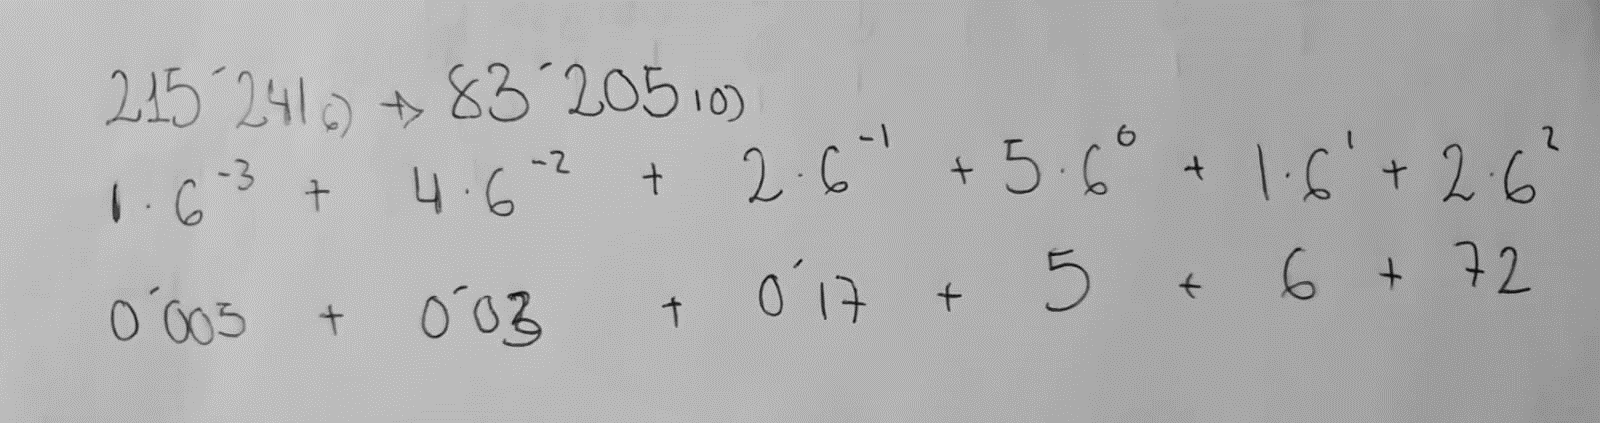 215´241₆₎ → 83´205₁₀₎
1·6⁻³ + 4·6⁻² + 2·6⁻¹ + 5·6⁰ + 1·6¹ + 2·6²
0´005 + 0´03 + 0´17 + 5 + 6 + 72